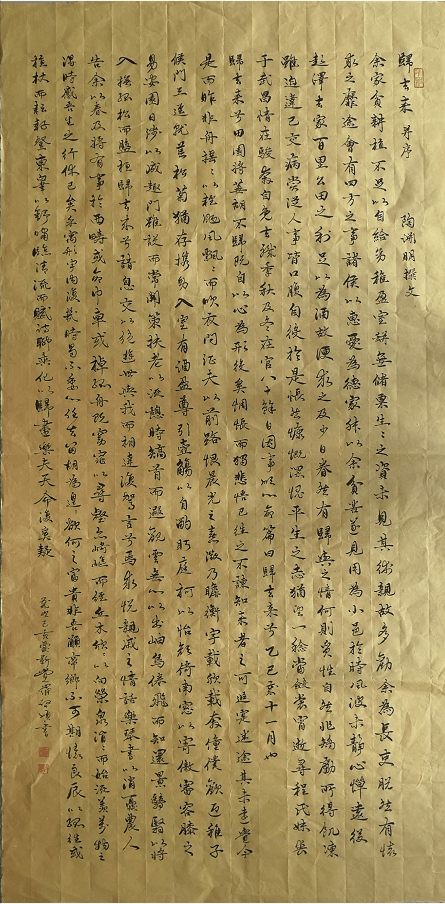 歸去來 并序 陶淵明撰文
余家貧耕植不足以自給幼稚盈室缾無儲粟生生之資未見其術親故多勸余為長吏脫然有懷
求之靡途會有四方之事諸侯以惠愛為德家叔以余貧苦遂見用為小邑於時風波未靜心憚遠役
彭澤去家百里公田之利足以為酒故便求之及少日眷然有歸與之情何則質性自然非矯勵所得飢凍
雖迫違己交病嘗從人事皆口腹自役於是悵然慷慨深愧平生之志猶望一稔當斂裳宵逝尋程氏妹喪
于武昌情在駿奔自免去職季秋及冬在官八十餘日因事順心命篇曰歸去來兮乙巳歲十一月也
歸去來兮田園將蕪胡不歸既自以心為形役奚惆悵而獨悲悟已往之不諫知來者之可追寔迷途其未遠覺今
是而昨非舟搖搖以輕颺風飄飄而吹衣問征夫以前路恨晨光之熹微乃瞻衡宇載欣載奔僮僕歡迎稚子
候門三逕就荒松菊猶存攜幼入室有酒盈尊引壺觴以自酌眄庭柯以怡顏倚南窗以寄傲審容膝之
易安園日涉以成趣門雖設而常關策扶老以流憩時矯首而遐觀雲無心以出岫鳥倦飛而知還景翳翳以將
入撫孤松而盤桓歸去來兮請息交以絕遊世與我而相違復駕言兮焉求悅親戚之情話樂琴書以消憂農人
告余以春及將有事於西疇或命巾車或棹孤舟既窈窕以尋壑亦崎嶇而經丘木欣欣以向榮泉涓涓而始流善萬物之
得時感吾生之行休已矣乎寓形宇內復幾時曷不委心任去留胡為遑欲何之富貴非吾願帝鄉不可期懷良辰以孤往或
植杖而耘耔登東皋以舒嘯臨清流而賦詩聊乘化以歸盡樂夫天命復奚疑